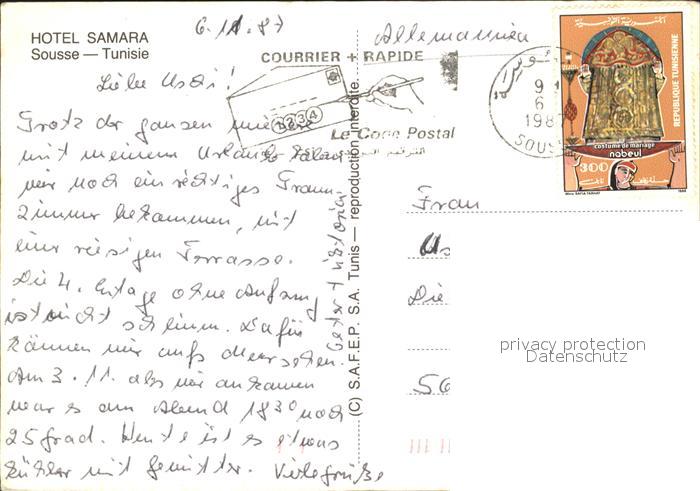 HOTEL SAMARA
Sousse — Tunisie
6.11.87
Allemannia
COURRIER + RAPIDE
1234
Le Code Postal
Liebe Uschi!
Trotz der ganzen
mit meinem Urlaub haben
wir noch ein richtiges Traum-
zimmer bekommen, mit
einer riesigen Terrasse.
Die 4. Etage ohne Aufzug
ist nicht schlimm. Dafür
können wir aufs Meer sehen.
Am 3.11. als wir ankamen
war es am Abend 18 30 noch
25 Grad. Heute ist es etwas
kühler mit Gewitter. Viele Grüße
(C) S.A.F.E.P. S.A. Tunis — reproduction interdite
9
6
198
SOUS
REPUBLIQUE TUNISIENNE
costume de mariage
nabeul
300
Frau
Us
Die
56
privacy protection
Datenschutz